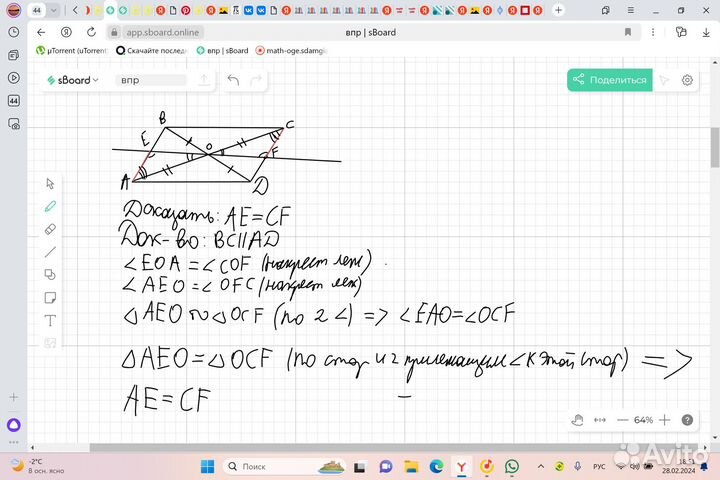 44
app.sboard.online
впр | sBoard
µTorrent (uTorrent
Скачайте послед
впр | sBoard
math-oge.sdamgi
sBoard
впр
Поделиться
44
B
C
E
O
F
A
D
Доказать: AE=CF
Док-во: BC||AD
∠EOA=∠COF (накрест леж)
∠AEO=∠OFC (накрест леж)
△AEO ∾ △OCF (по 2 ∠) => ∠EAO=∠OCF
△AEO=△OCF (по стор и 2 прилежащим ∠ к этой стор) =>
AE=CF
64%
-2°C
В осн. ясно
Поиск
РУС
18:51
28.02.2024
Avito